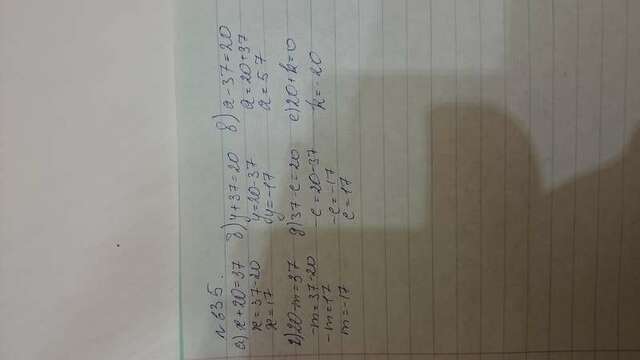 №635.
а) x+20=37
x=37-20
x=17
б) y+37=20
y=20-37
y=-17
в) a-37=20
a=20+37
a=57
г) 20-m=37
-m=37-20
-m=17
m=-17
д) 37-c=20
-c=20-37
-c=-17
c=17
е) 20+k=0
k=-20